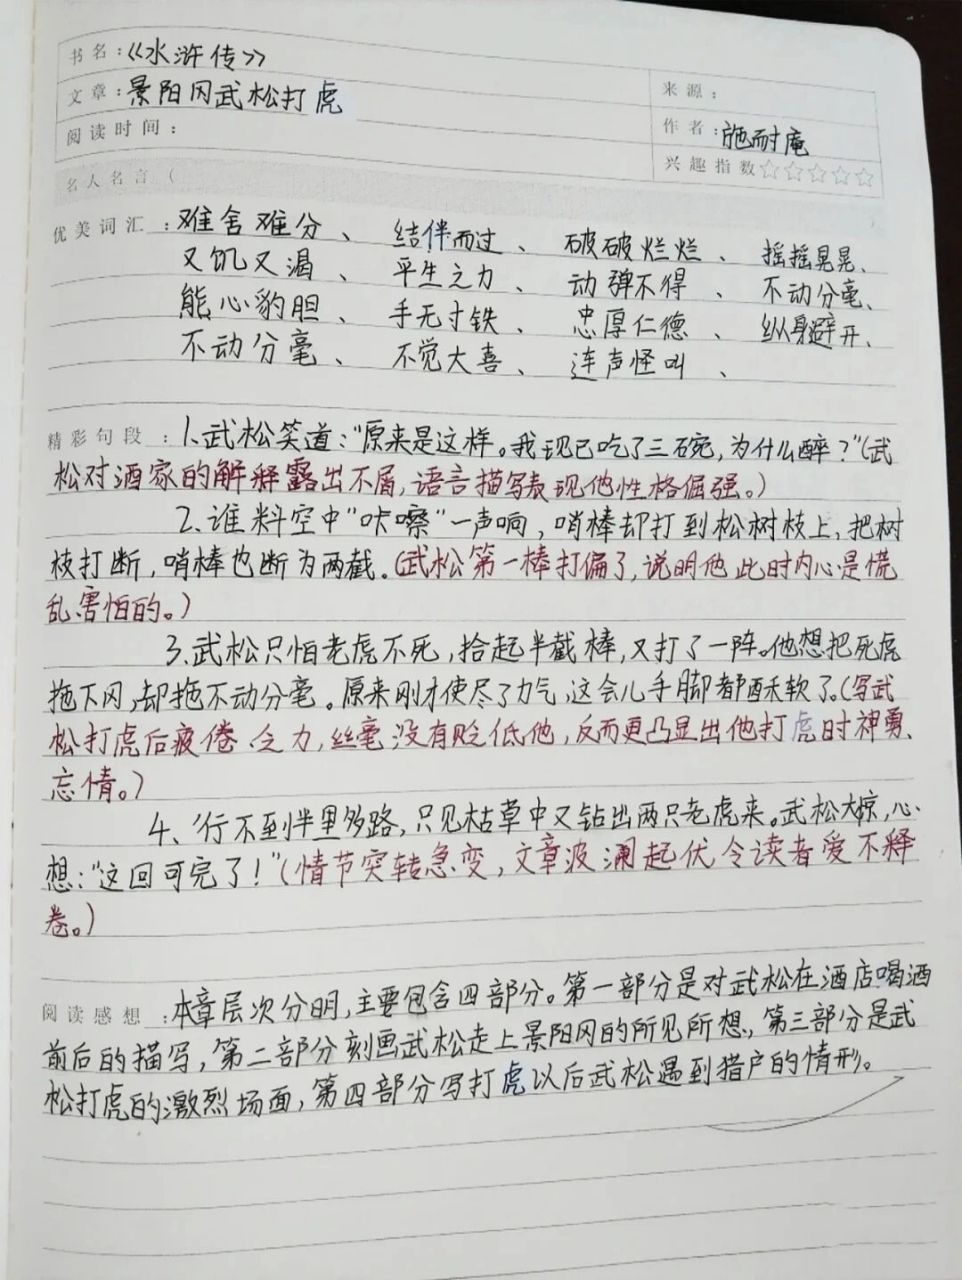 书名：《水浒传》
文章：景阳冈武松打虎
来源：
阅读时间：
作者：施耐庵
兴趣指数☆☆☆☆☆
名人名言（
优美词汇：难舍难分、 结伴而过、 破破烂烂、 摇摇晃晃、
又饥又渴、 平生之力、 动弹不得、 不动分毫、
熊心豹胆、 手无寸铁、 忠厚仁德、 纵身避开、
不动分毫、 不觉大喜、 连声怪叫、
精彩句段：1、武松笑道：“原来是这样。我现已吃了三碗，为什么醉？”（武
松对酒家的解释露出不屑，语言描写表现他性格倔强。）
2、谁料空中“咔嚓”一声响，哨棒却打到松树枝上，把树
枝打断，哨棒也断为两截。（武松第一棒打偏了，说明他此时内心是慌
乱害怕的。）
3、武松只怕老虎不死，拾起半截棒，又打了一阵。他想把死虎
拖下冈，却拖不动分毫。原来刚才使尽了力气，这会儿手脚都酥软了。（写武
松打虎后疲倦、乏力，丝毫没有贬低他，反而更凸显出他打虎时神勇、
忘情。）
4、行不到半里多路，只见枯草中又钻出两只老虎来。武松大惊，心
想：“这回可完了！”（情节突转急变，文章波澜起伏令读者爱不释
卷。）
阅读感想：本章层次分明，主要包含四部分。第一部分是对武松在酒店喝酒
前后的描写，第二部分刻画武松走上景阳冈的所见所想，第三部分是武
松打虎的激烈场面，第四部分写打虎以后武松遇到猎户的情形。